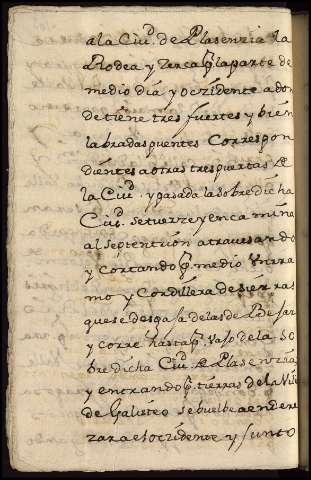 a la Ciud. de Plasenzia la
a Rodea y zerca pr. la parte de
medio dia y ozidente a don
de tiene tres fuertes y bien
labradas puentes Correspon
dientes a otras tres puertas de
la Ciud. y pasada la sobre dicha
Ciud. se tuerze y encamina
al septentrion atravesando
y cortando pr. medio Un rra
mo y Cordillera de sierras
que se desgaja de las de Bejar
y corre hasta pr. vajo de la so
bre dicha Ciud. de Plasenzia
y entrando pr. tierras de la Villa
de Galisteo se buelbe a endere
zar a el oczidente y junto